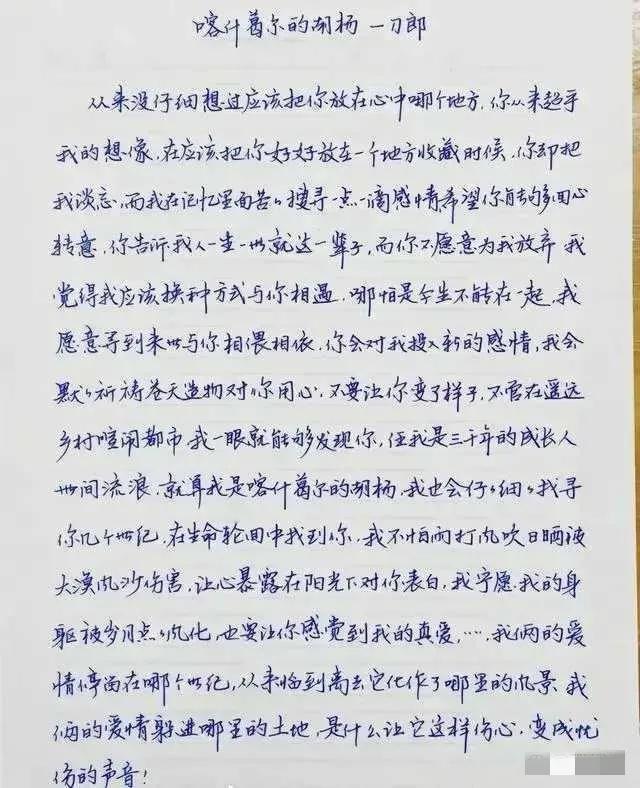 喀什葛尔的胡杨 一刀郎
从来没仔细想过应该把你放在心中哪个地方,你从来超乎
我的想像,在应该把你好好放在一个地方收藏时候,你却把
我淡忘,而我在记忆里面苦々搜寻一点一滴感情希望你能够回心
转意,你告诉我人一生一世就这一辈子,而你不愿意为我放弃 我
觉得我应该换种方式与你相遇,哪怕是今生不能在一起,我
愿意寻到来世与你相偎相依,你会对我投入新的感情,我会
默々祈祷苍天造物对你用心,不要让你变了样子,不管在遥远
乡村喧闹都市 我一眼就能够发现你,任我是三千年的成长人
世间流浪,就算我是喀什葛尔的胡杨,我也会仔々细々找寻
你几个世纪,在生命轮回中找到你,我不怕雨打风吹日晒被
大漠风沙伤害,让心暴露在阳光下对你表白,我宁愿我的身
躯被岁月点々风化,也要让你感觉到我的真爱,……,我俩的爱
情停留在哪个世纪,从来临到离去它化作了哪里的风景,我
俩的爱情躲进哪里的土地,是什么让它这样伤心,变成忧
伤的声音!